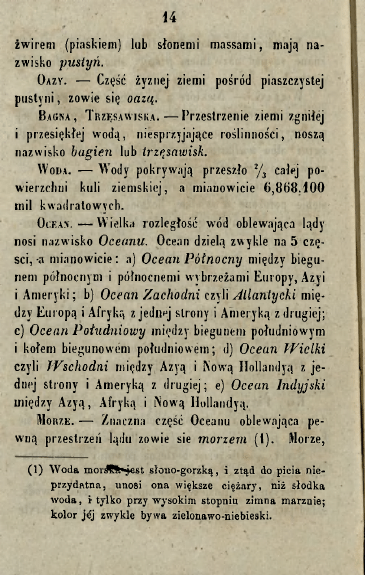 14
żwirem (piaskiem) lub słonemi massami, mają na-
zwisko pustyń.
Oazy. — Część żyznej ziemi pośród piaszczystej
pustyni, zowie się oazą.
Bagna, Trzęsawiska. — Przestrzenie ziemi zgniłéj
i przesiękłej wodą, niesprzyjające roślinności, noszą
nazwisko bagien lub trzęsawisk.
Woda. — Wody pokrywają przeszło ²/₃ całej po-
wierzchni kuli ziemskiej, a mianowicie 6,868,100
mil kwadratowych.
Ocean. — Wielka rozległość wód oblewająca lądy
nosi nazwisko Oceanu. Ocean dzielą zwykle na 5 czę-
ści, a mianowicie: a) Ocean Północny między biegu-
nem północnym i północnemi wybrzeżami Europy, Azyi
i Ameryki; b) Ocean Zachodni czyli Atlantycki mię-
dzy Europą i Afryką z jednej strony i Ameryką z drugiej;
c) Ocean Południowy między biegunem południowym
i kołem biegunowém południowém; d) Ocean Wielki
czyli Wschodni między Azyą i Nową Hollandyą z je-
dnej strony i Ameryką z drugiej; e) Ocean Indyjski
między Azyą, Afryką i Nową Hollandyą.
Morze. — Znaczna część Oceanu oblewająca pe-
wną przestrzeń lądu zowie sie morzem (1). Morze,
(1) Woda morska jest słono-gorzką, i ztąd do picia nie-
przydatna, unosi ona większe ciężary, niż słodka
woda, i tylko przy wysokim stopniu zimna marznie;
kolor jéj zwykle bywa zielonawo-niebieski.